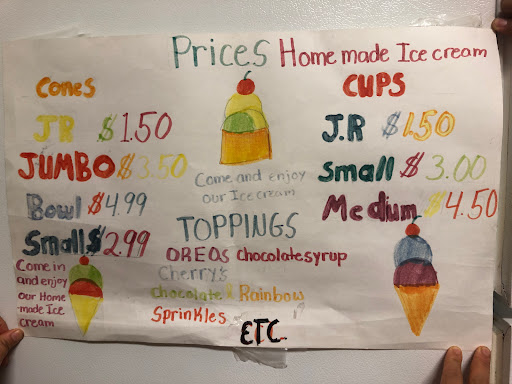 Prices Home made Ice cream
Cones
JR $1.50
JUMBO $3.50
Bowl $4.99
Small $2.99
Come in
and enjoy
our Home
made Ice
cream
Come and enjoy
our Ice cream
TOPPINGS
OREOS chocolate syrup
Cherry's
chocolate & Rainbow
Sprinkles
ETC
CUPS
J.R $1.50
Small $3.00
Medium $4.50